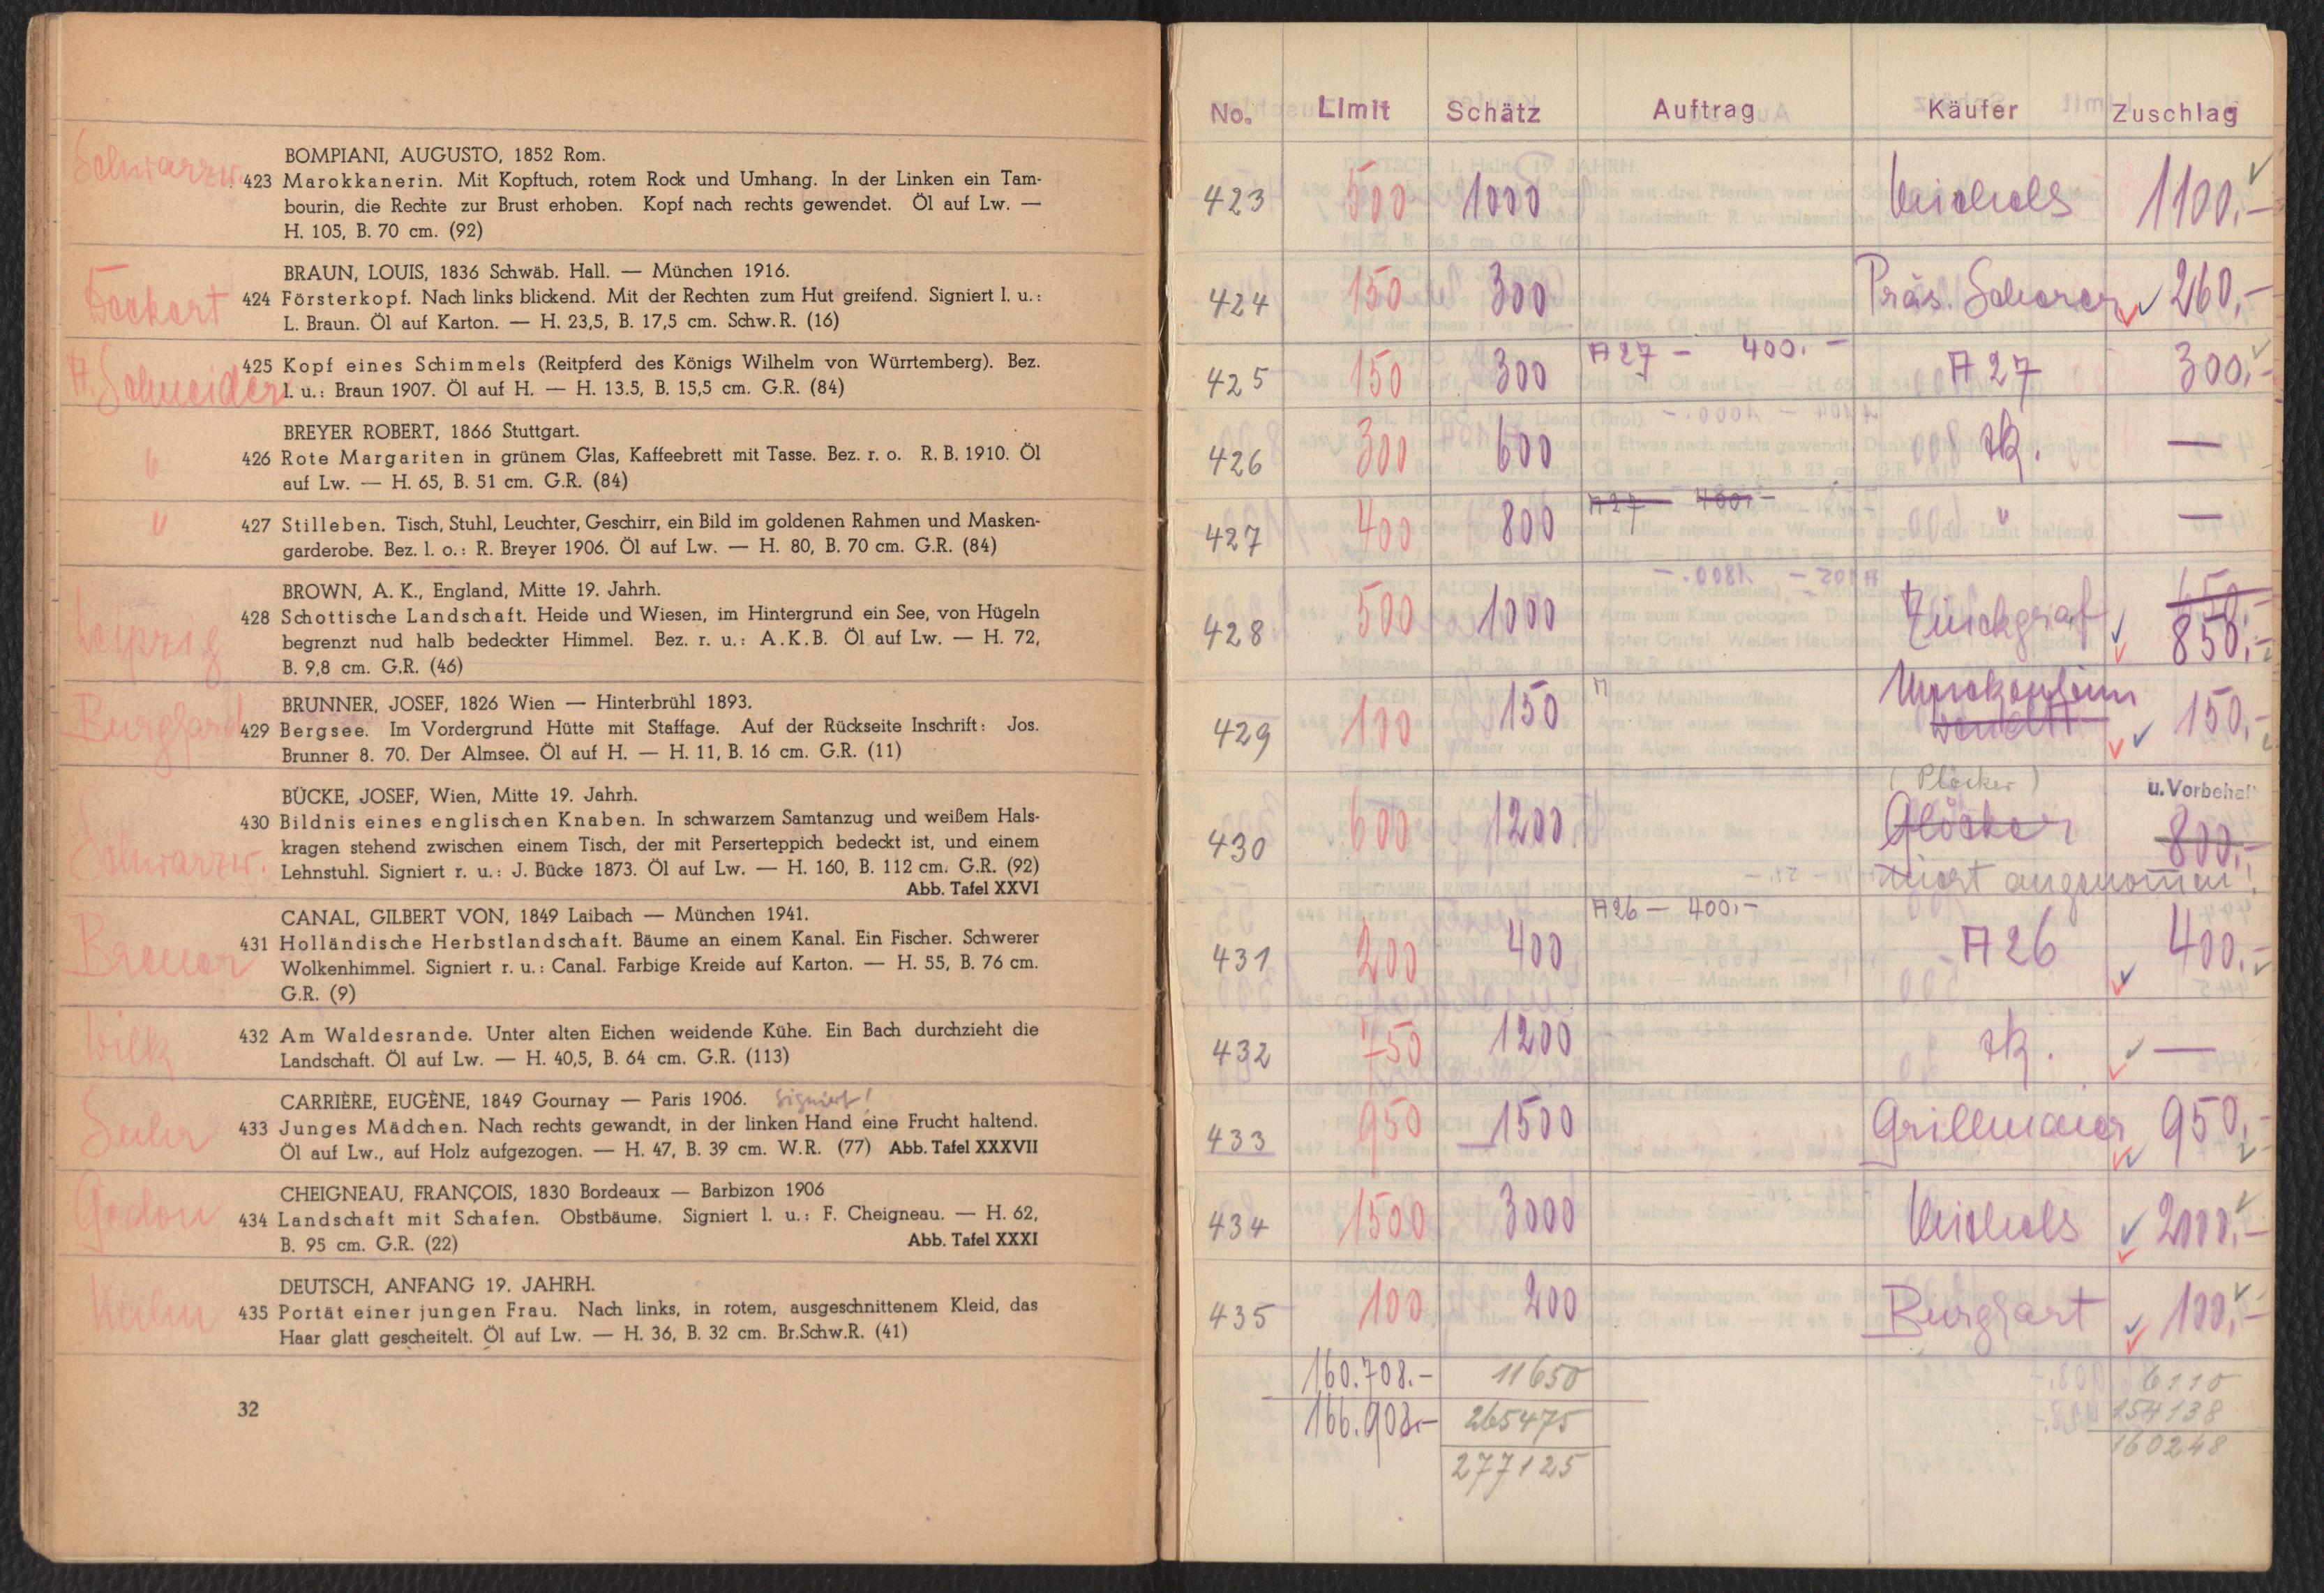 Schwarzw.
BOMPIANI, AUGUSTO, 1852 Rom.
423 Marokkanerin. Mit Kopftuch, rotem Rock und Umhang. In der Linken ein Tam-
bourin, die Rechte zur Brust erhoben. Kopf nach rechts gewendet. Öl auf Lw. —
H. 105, B. 70 cm. (92)
BRAUN, LOUIS, 1836 Schwäb. Hall. — München 1916.
424 Försterkopf. Nach links blickend. Mit der Rechten zum Hut greifend. Signiert l. u.:
L. Braun. Öl auf Karton. — H. 23,5, B. 17,5 cm. Schw.R. (16)
A. Schneider
425 Kopf eines Schimmels (Reitpferd des Königs Wilhelm von Würrtemberg). Bez.
l. u.: Braun 1907. Öl auf H. — H. 13.5, B. 15,5 cm. G.R. (84)
BREYER ROBERT, 1866 Stuttgart.
426 Rote Margariten in grünem Glas, Kaffeebrett mit Tasse. Bez. r. o. R. B. 1910. Öl
auf Lw. — H. 65, B. 51 cm. G.R. (84)
427 Stilleben. Tisch, Stuhl, Leuchter, Geschirr, ein Bild im goldenen Rahmen und Masken-
garderobe. Bez. l. o.: R. Breyer 1906. Öl auf Lw. — H. 80, B. 70 cm. G.R. (84)
Leipzig
BROWN, A. K., England, Mitte 19. Jahrh.
428 Schottische Landschaft. Heide und Wiesen, im Hintergrund ein See, von Hügeln
begrenzt nud halb bedeckter Himmel. Bez. r. u.: A.K.B. Öl auf Lw. — H. 72,
B. 9,8 cm. G.R. (46)
Burghard
BRUNNER, JOSEF, 1826 Wien — Hinterbrühl 1893.
429 Bergsee. Im Vordergrund Hütte mit Staffage. Auf der Rückseite Inschrift: Jos.
Brunner 8. 70. Der Almsee. Öl auf H. — H. 11, B. 16 cm. G.R. (11)
Schwarzw.
BÜCKE, JOSEF, Wien, Mitte 19. Jahrh.
430 Bildnis eines englischen Knaben. In schwarzem Samtanzug und weißem Hals-
kragen stehend zwischen einem Tisch, der mit Perserteppich bedeckt ist, und einem
Lehnstuhl. Signiert r. u.: J. Bücke 1873. Öl auf Lw. — H. 160, B. 112 cm. G.R. (92)
Abb. Tafel XXVI
CANAL, GILBERT VON, 1849 Laibach — München 1941.
431 Holländische Herbstlandschaft. Bäume an einem Kanal. Ein Fischer. Schwerer
Wolkenhimmel. Signiert r. u.: Canal. Farbige Kreide auf Karton. — H. 55, B. 76 cm.
G.R. (9)
Wilk
432 Am Waldesrande. Unter alten Eichen weidende Kühe. Ein Bach durchzieht die
Landschaft. Öl auf Lw. — H. 40,5, B. 64 cm. G.R. (113)
CARRIÈRE, EUGÈNE, 1849 Gournay — Paris 1906. Signiert!
433 Junges Mädchen. Nach rechts gewandt, in der linken Hand eine Frucht haltend.
Öl auf Lw., auf Holz aufgezogen. — H. 47, B. 39 cm. W.R. (77) Abb. Tafel XXXVII
Godon
CHEIGNEAU, FRANÇOIS, 1830 Bordeaux — Barbizon 1906
434 Landschaft mit Schafen. Obstbäume. Signiert l. u.: F. Cheigneau. — H. 62,
B. 95 cm. G.R. (22) Abb. Tafel XXXI
DEUTSCH, ANFANG 19. JAHRH.
435 Portät einer jungen Frau. Nach links, in rotem, ausgeschnittenem Kleid, das
Haar glatt gescheitelt. Öl auf Lw. — H. 36, B. 32 cm. Br.Schw.R. (41)
32
No. Limit Schätz Auftrag Käufer Zuschlag
423 500 1000 1100,-
424 150 300 Präs. Scherer 260,-
425 150 300 A27 - 400.- A 27 300,-
426 300 600 zk. —
427 400 800 A27 - 400,- " —
428 500 1000 Zinckgraf 650 850,-
429 100 150 150,-
(Plöcker) u. Vorbehalt
430 600 1200 Glöcker 800,-
nicht angenommen!
431 200 400 A26 - 400,- A 26 400,-
432 750 1200 zk. —
433 950 1500 Grillmaier 950,-
434 1500 3000 2000,-
435 100 200 Burghart 100,-
160.708.- 11650 6110
166.908.- 265475 154138
277125 160248